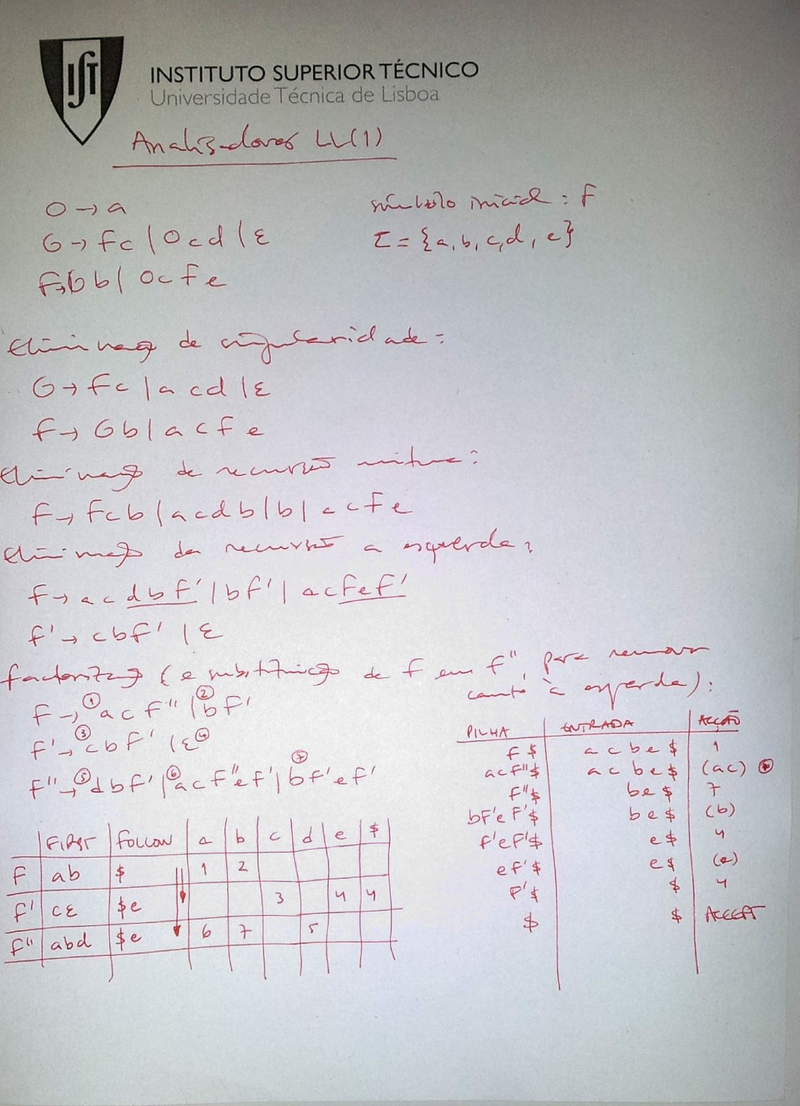 IST
INSTITUTO SUPERIOR TÉCNICO
Universidade Técnica de Lisboa
Analisadores LL(1)
O → a
símbolo inicial : F
G → Fc | Ocd | ε
Σ = {a, b, c, d, e}
F → Gb | OcFe
Eliminação de singularidade:
G → Fc | acd | ε
F → Gb | acFe
Eliminação de recursão mútua:
F → Fcb | acdb | b | acFe
Eliminação da recursão à esquerda:
F → acdbF' | bF' | acFeF'
F' → cbF' | ε
Factorização (e substituição de F em F'', para remover
canto à esquerda):
F → ① acF'' | ② bF'
F' → ③ cbF' | ε ④
F'' → ⑤ dbF' | ⑥ acF''eF' | ⑦ bF'eF'
PILHA ENTRADA ACÇÃO
F $ acbe $ 1
acF''$ acbe $ (ac)
F''$ be $ 7
bF'eF'$ be $ (b)
F'eF'$ e $ 4
eF'$ e $ (e)
F'$ $ 4
$ $ ACCEPT
FIRST FOLLOW a b c d e $
F ab $ 1 2
F' cε $e 3 4 4
F'' abd $e 6 7 5